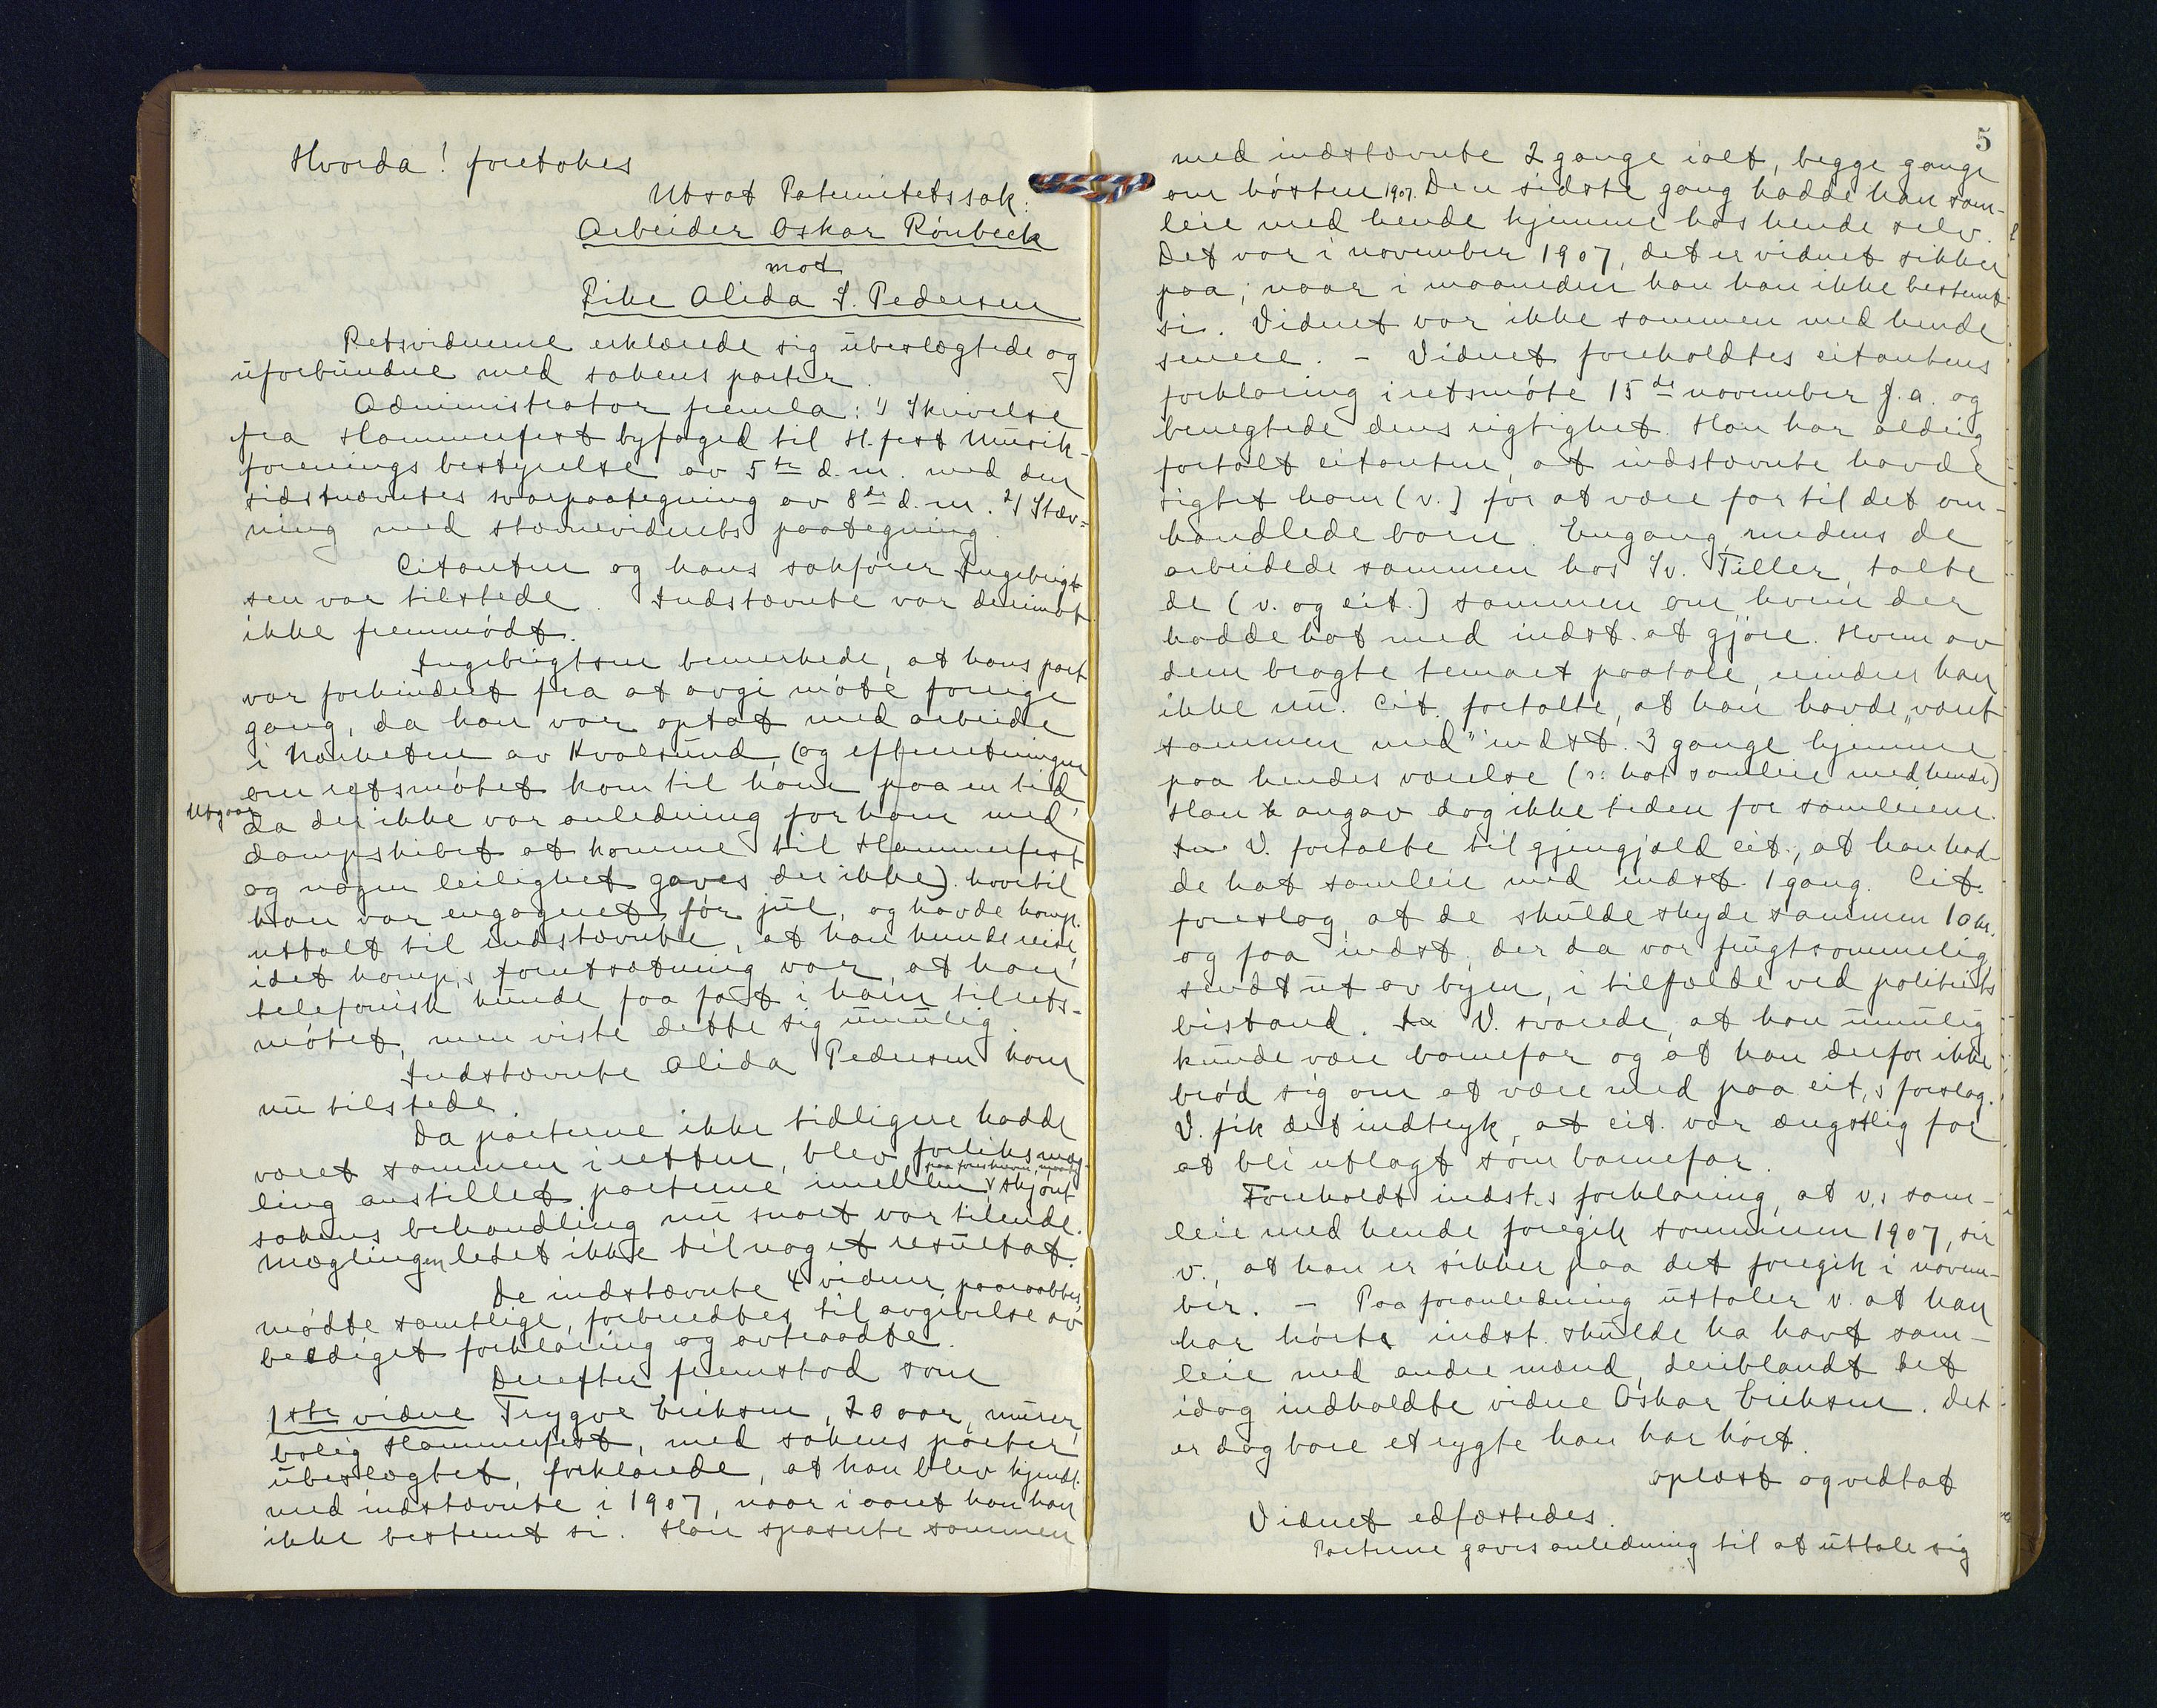 Hvorda! foretokes
Utsat Paternitetssak:
Arbeider Oskar Rönbeck
mot
Pike Alida J. Pedersen
Retsvidnerne erklærede sig ubeslægtede og
uforbundne med sakens parter.
Administrator fremla: 1/ Skrivelse
fra Hammerfest byfoged til H.fest Musik-
forenings bestyrelse av 5te d.m. med den
sidstnævntes svarpaategning av 8de d.m. 2/ Stæv-
ning med stævnevidnets paategning.
Citanten og hans sakfører Ingebrigt-
sen var tilstede. Indstævnte var derimot
ikke fremmødt.
Ingebrigtsen bemerkede, at hans part
var forhindret fra at avgi møte forrige
gang, da han var optat med arbeide
i nærheten av Kvalsund, (og efterretningen
om retsmøtet kom til ham paa en tid
Utgaar
da der ikke var anledning for ham med
dampskibet at komme til Hammerfest
og nogen leilighet gaves der ikke). hvortil
han var engageret før jul, og havde komp.
uttalt til indstævnte, at han kunde reise,
idet komp,s forutsætning var, at han
telefonisk kunde faa fat i ham til rets-
møtet, men viste dette sig umulig.
Indstævnte Alida Pedersen kom
nu tilstede.
Da parterne ikke tidligere hadde
været sammen i retten, blev forliksmæg-
ling anstillet parterne imellem paa foreskreven maate, skjønt
sakens behandling nu snart var tilende.
Mæglingen ledet ikke til noget resultat.
De indstævnte 4 vidner paaraabtes,
mødte samtlige, forberedtes til avgivelse av
beediget forklaring og avtraadte.
Derefter fremstod som
1ste vidne Trygve Eriksen, 20 aar, murer,
bolig Hammerfest, med sakens parter
ubeslægtet, forklarede, at han blev kjendt
med indstævnte i 1907, naar i aaret kan han
ikke bestemt si. Han spaserte sammen
5
med indstævnte 2 gange ialt, begge gange
om høsten 1907. Den sidste gang hadde han sam-
leie med hende hjemme hos hende selv.
Det var i november 1907, det er vidnet sikker
paa; naar i maaneden kan han ikke bestemt
si. Vidnet var ikke sammen med hende
senere. – Vidnet foreholdtes citantens
forklaring i retsmøte 15de november f.a. og
benegtede dens rigtighet. Han har aldrig
fortalt citanten, at indstævnte havde
sigtet ham (v.) for at være far til det om-
handlede barn. Engang, medens de
arbeidede sammen hos Sv. Tiller, talte
de (v. og cit.) sammen om hvem der
hadde hat med indst. at gjøre. Hvem av
dem bragte temaet paatale, mindes han
ikke nu. Cit. fortalte, at han havde „været
sammen med" indst. 3 gange hjemme
paa hendes værelse (ɔ: hat samleie med hende)
Han angav dog ikke tiden for samleiene.
V. fortalte til gjengjæld cit., at han had-
de hat samleie med indst. 1 gang. Cit.
foreslog, at de skulde skyde sammen 10 kr.
og faa indst., der da var frugtsommelig,
sendt ut av byen, i tilfælde ved politiets
bistand. V. svarede, at han umulig
kunde være barnefar og at han derfor ikke
brød sig om at være med paa cit,s forslag.
V. fik det indtryk, at cit. var ængstlig for
at bli utlagt som barnefar.
Foreholdt indst,s forklaring, at v,s sam-
leie med hende foregik sommeren 1907, sir
v., at han er sikker paa det foregik i novem-
ber. – Paa foranledning uttaler v. at han
har hørt indst. skulde ha havt sam-
leie med andre mænd, deriblandt det
idag indkaldte vidne Oskar Eriksen. Det
er dog bare et rygte han har hørt.
Oplæst og vedtat
Vidnet edfæstedes.
Parterne gaves anledning til at uttale sig